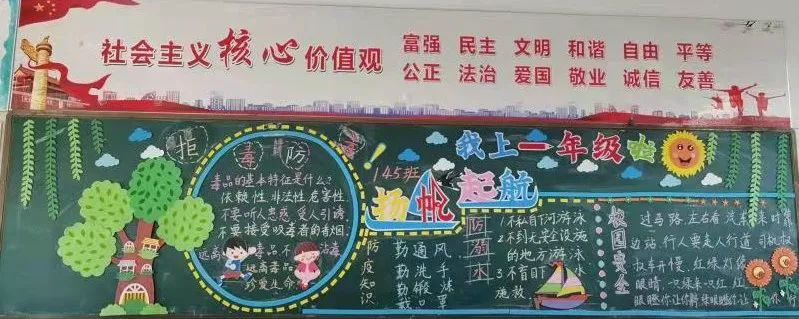 社会主义核心价值观
富强 民主 文明 和谐 自由 平等
公正 法治 爱国 敬业 诚信 友善
拒毒防毒
毒品的基本特征是什么?
依赖性,非法性,危害性
不要听人惑 受人引诱
不要接受吸毒者的香烟
远离 毒品 不 毒
远离毒品
珍爱生命
145班
我上一年级啦
扬帆起航
防疫知识
勤通风
勤洗手
勤锻
戴口罩
防溺水
1不私自下河游泳
2不到无安设施
的地方游泳
3不盲目下水
施救
校园安全
过马路,左右看 汽车来时靠
边站,行人要走人行道 司机
车开慢,红绿灯
眼睛,一只绿来一只红
眼瞪你让你 绿眼瞪你让
行